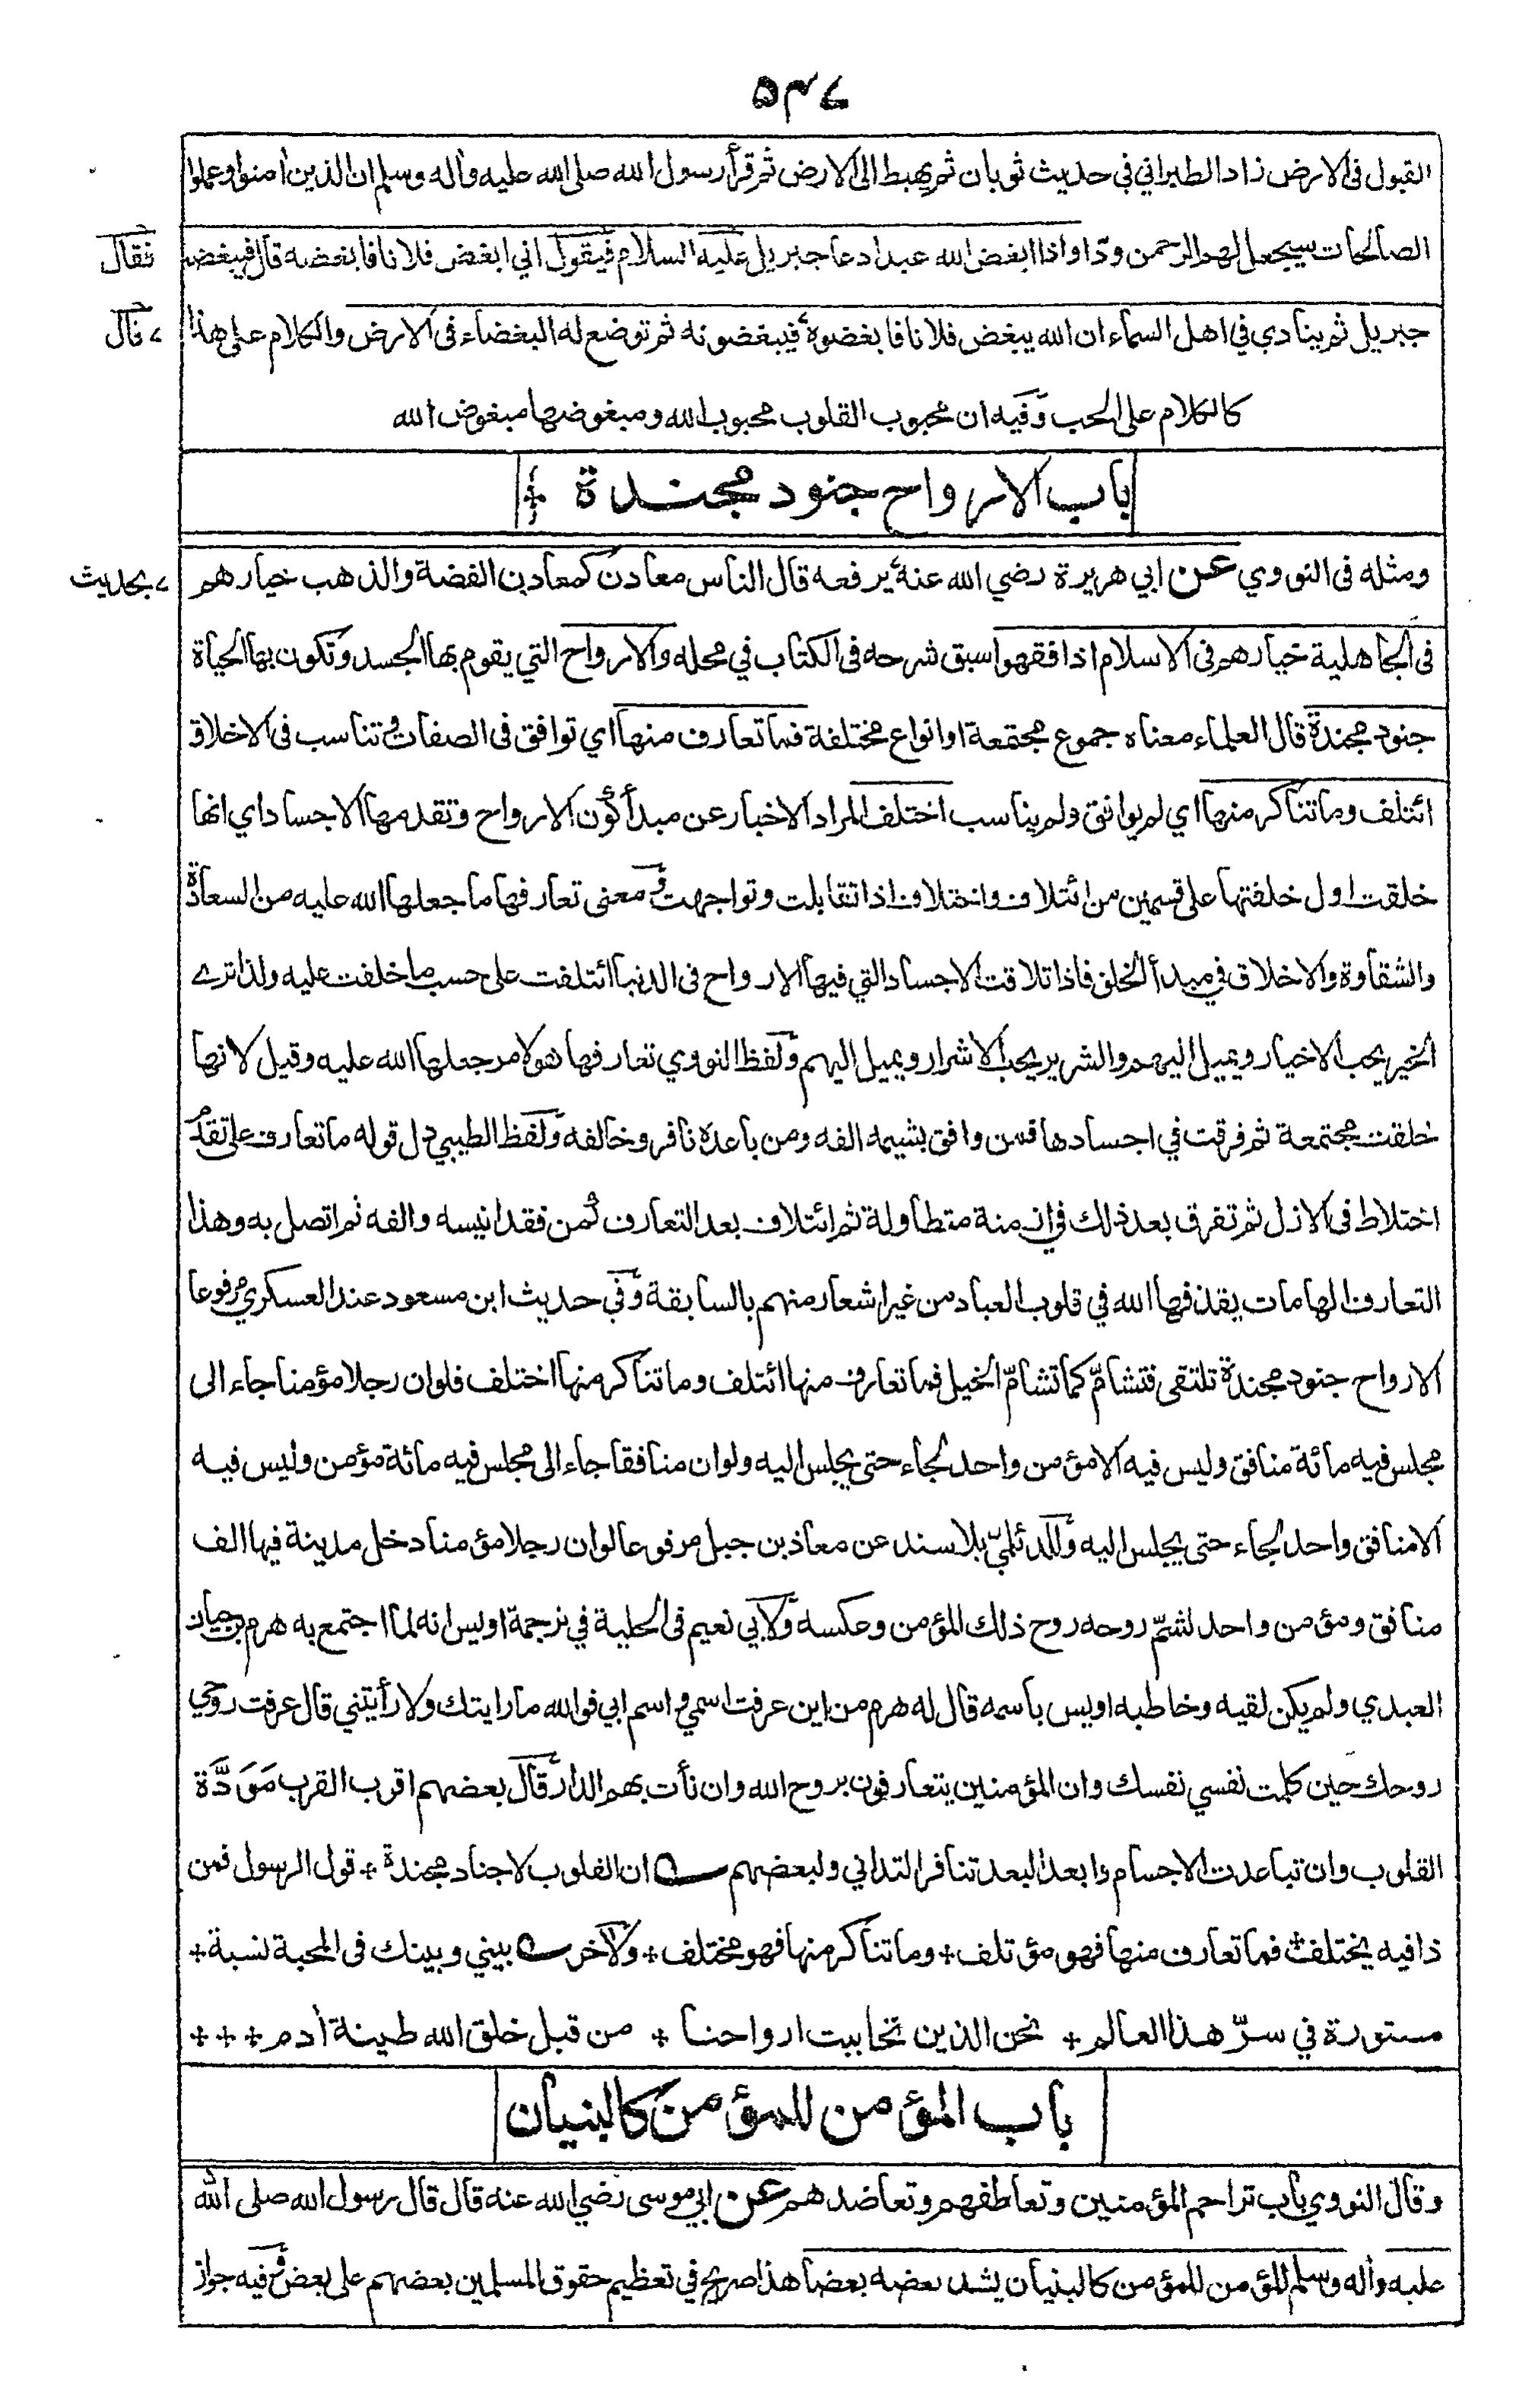 ٥٣٧
القبول فى الارض زاد الطبراني في حديث ثوبان ثم يهبط الى الارض ثم قرأ رسول الله صلى الله عليه وأله وسلم ان الذين امنوا وعملوا
الصالحات سيجعل لهم الرحمن ودّا واذا ابغض الله عبدا دعا جبريل عليه السلام فيقول اني ابغض فلانا فابغضه قال فيبغضه
فقال
جبريل ثم ينادي في اهل السماء ان الله يبغض فلانا فابغضوه فيبغضونه ثم توضع له البغضاء فى الارض والكلام على هذا
قال
كالكلام على الحب وفيه ان محبوب القلوب محبوب الله ومبغوضها مبغوض الله
باب الارواح جنود مجندة
ومثله فى النووي عن ابي هريرة رضي الله عنه يرفعه قال الناس معادن كمعادن الفضة والذهب خيارهم
بحديث
فى الجاهلية خيارهم فى الاسلام اذا فقهوا سبق شرحه فى الكتاب في محله والارواح التي يقوم بها الجسد وتكون بها الحياة
جنود مجندة قال العلماء معناه جموع مجتمعة او انواع مختلفة فما تعارف منها اي توافق فى الصفات وتناسب فى الاخلاق
ائتلف وما تناكر منها اي لم يوافق ولم يناسب اختلف المراد الاخبار عن مبدأ كون الارواح وتقدمها الاجساد اي انها
خلقت اول خلقتها على قسمين من ائتلاف واختلاف اذا تقابلت وتواجهت ومعنى تعارفها ما جعلها الله عليه من السعادة
والشقاوة والاخلاق في مبدأ الخلق فاذا تلاقت الاجساد التي فيها الارواح فى الدنيا ائتلفت على حسب ما خلفت عليه ولذا ترے
الخير يحب الاخيار ويميل اليهم والشرير يحب الاشرار ويميل اليهم ولفظ النووي تعارفها هو لامر جعلها الله عليه وقيل لانها
خلقت مجتمعة ثم فرقت في اجسادها فمن وافق بشيمه الفه ومن باعده نافره وخالفه ولفظ الطيبي دل قوله ما تعارف على تقدم
اختلاط فى الازل ثم تفرق بعد ذلك في ازمنة متطاولة ثم ائتلاف بعد التعارف كمن فقد انيسه والفه ثم اتصل به وهذا
التعارف الهامات يقذفها الله في قلوب العباد من غير اشعار منهم بالسابقة وفي حديث ابن مسعود عند العسكري مرفوعا
الارواح جنود مجندة تلتقى فتشامّ كما تشامّ الخيل فما تعارف منها ائتلف وما تناكر منها اختلف فلو ان رجلا مؤمنا جاء الى
مجلس فيه مائة منافق وليس فيه الا مؤمن واحد لجاء حتى يجلس اليه ولو ان منافقا جاء الى مجلس فيه مائة مؤمن وليس فيه
الا منافق واحد لجاء حتى يجلس اليه وللديلميّ بلا سند عن معاذ بن جبل مرفوعا لو ان رجلا مؤمنا دخل مدينة فيها الف
منافق ومؤمن واحد لشمّ روحه روح ذلك المؤمن وعكسه ولابي نعيم فى الحلية في ترجمة اويس انه لما اجتمع به هرم بن حيان
العبدي ولم يكن لقيه وخاطبه اويس باسمه قال له هرم من اين عرفت اسمي واسم ابي فوالله ما رايتك ولا رأيتني قال عرفت روحي
روحك حين كلمت نفسي نفسك وان المؤمنين يتعارفون بروح الله وان نأت بهم الدار قال بعضهم اقرب القرب مَوَدَّة
القلوب وان تباعدت الاجسام وابعد البعد تنافر التداني ولبعضهم ان القلوب لاجناد مجندة * قول الرسول فمن
ذا فيه يختلف * فما تعارف منها فهو مؤتلف * وما تناكر منها فهو مختلف * ولآخر بيني وبينك فى المحبة نسبة *
مستورة في سرّ هذا العالم * نحن الذين تحاببت ارواحنا * من قبل خلق الله طينة أدم * * *
باب المؤمن للمؤمن كالبنيان
وقال النووي باب تراحم المؤمنين وتعاطفهم وتعاضدهم عن ابي موسى رضي الله عنه قال قال رسول الله صلى الله
عليه وأله وسلم المؤمن للمؤمن كالبنيان يشد بعضه بعضا هذا صريح في تعظيم حقوق المسلمين بعضهم على بعض وفيه جواز